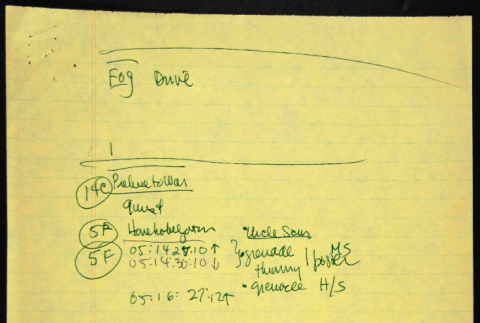 Fog Drive
1
14C Prelude to War
5F
5F 05:14:28:10 ↑
• Uncle Sam
grenade
05:14:30:10 ↓
throwing / poster MS
• grenade H/S
05:16:27:12 ↑